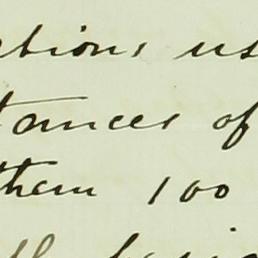 ations us
tances of
them 100